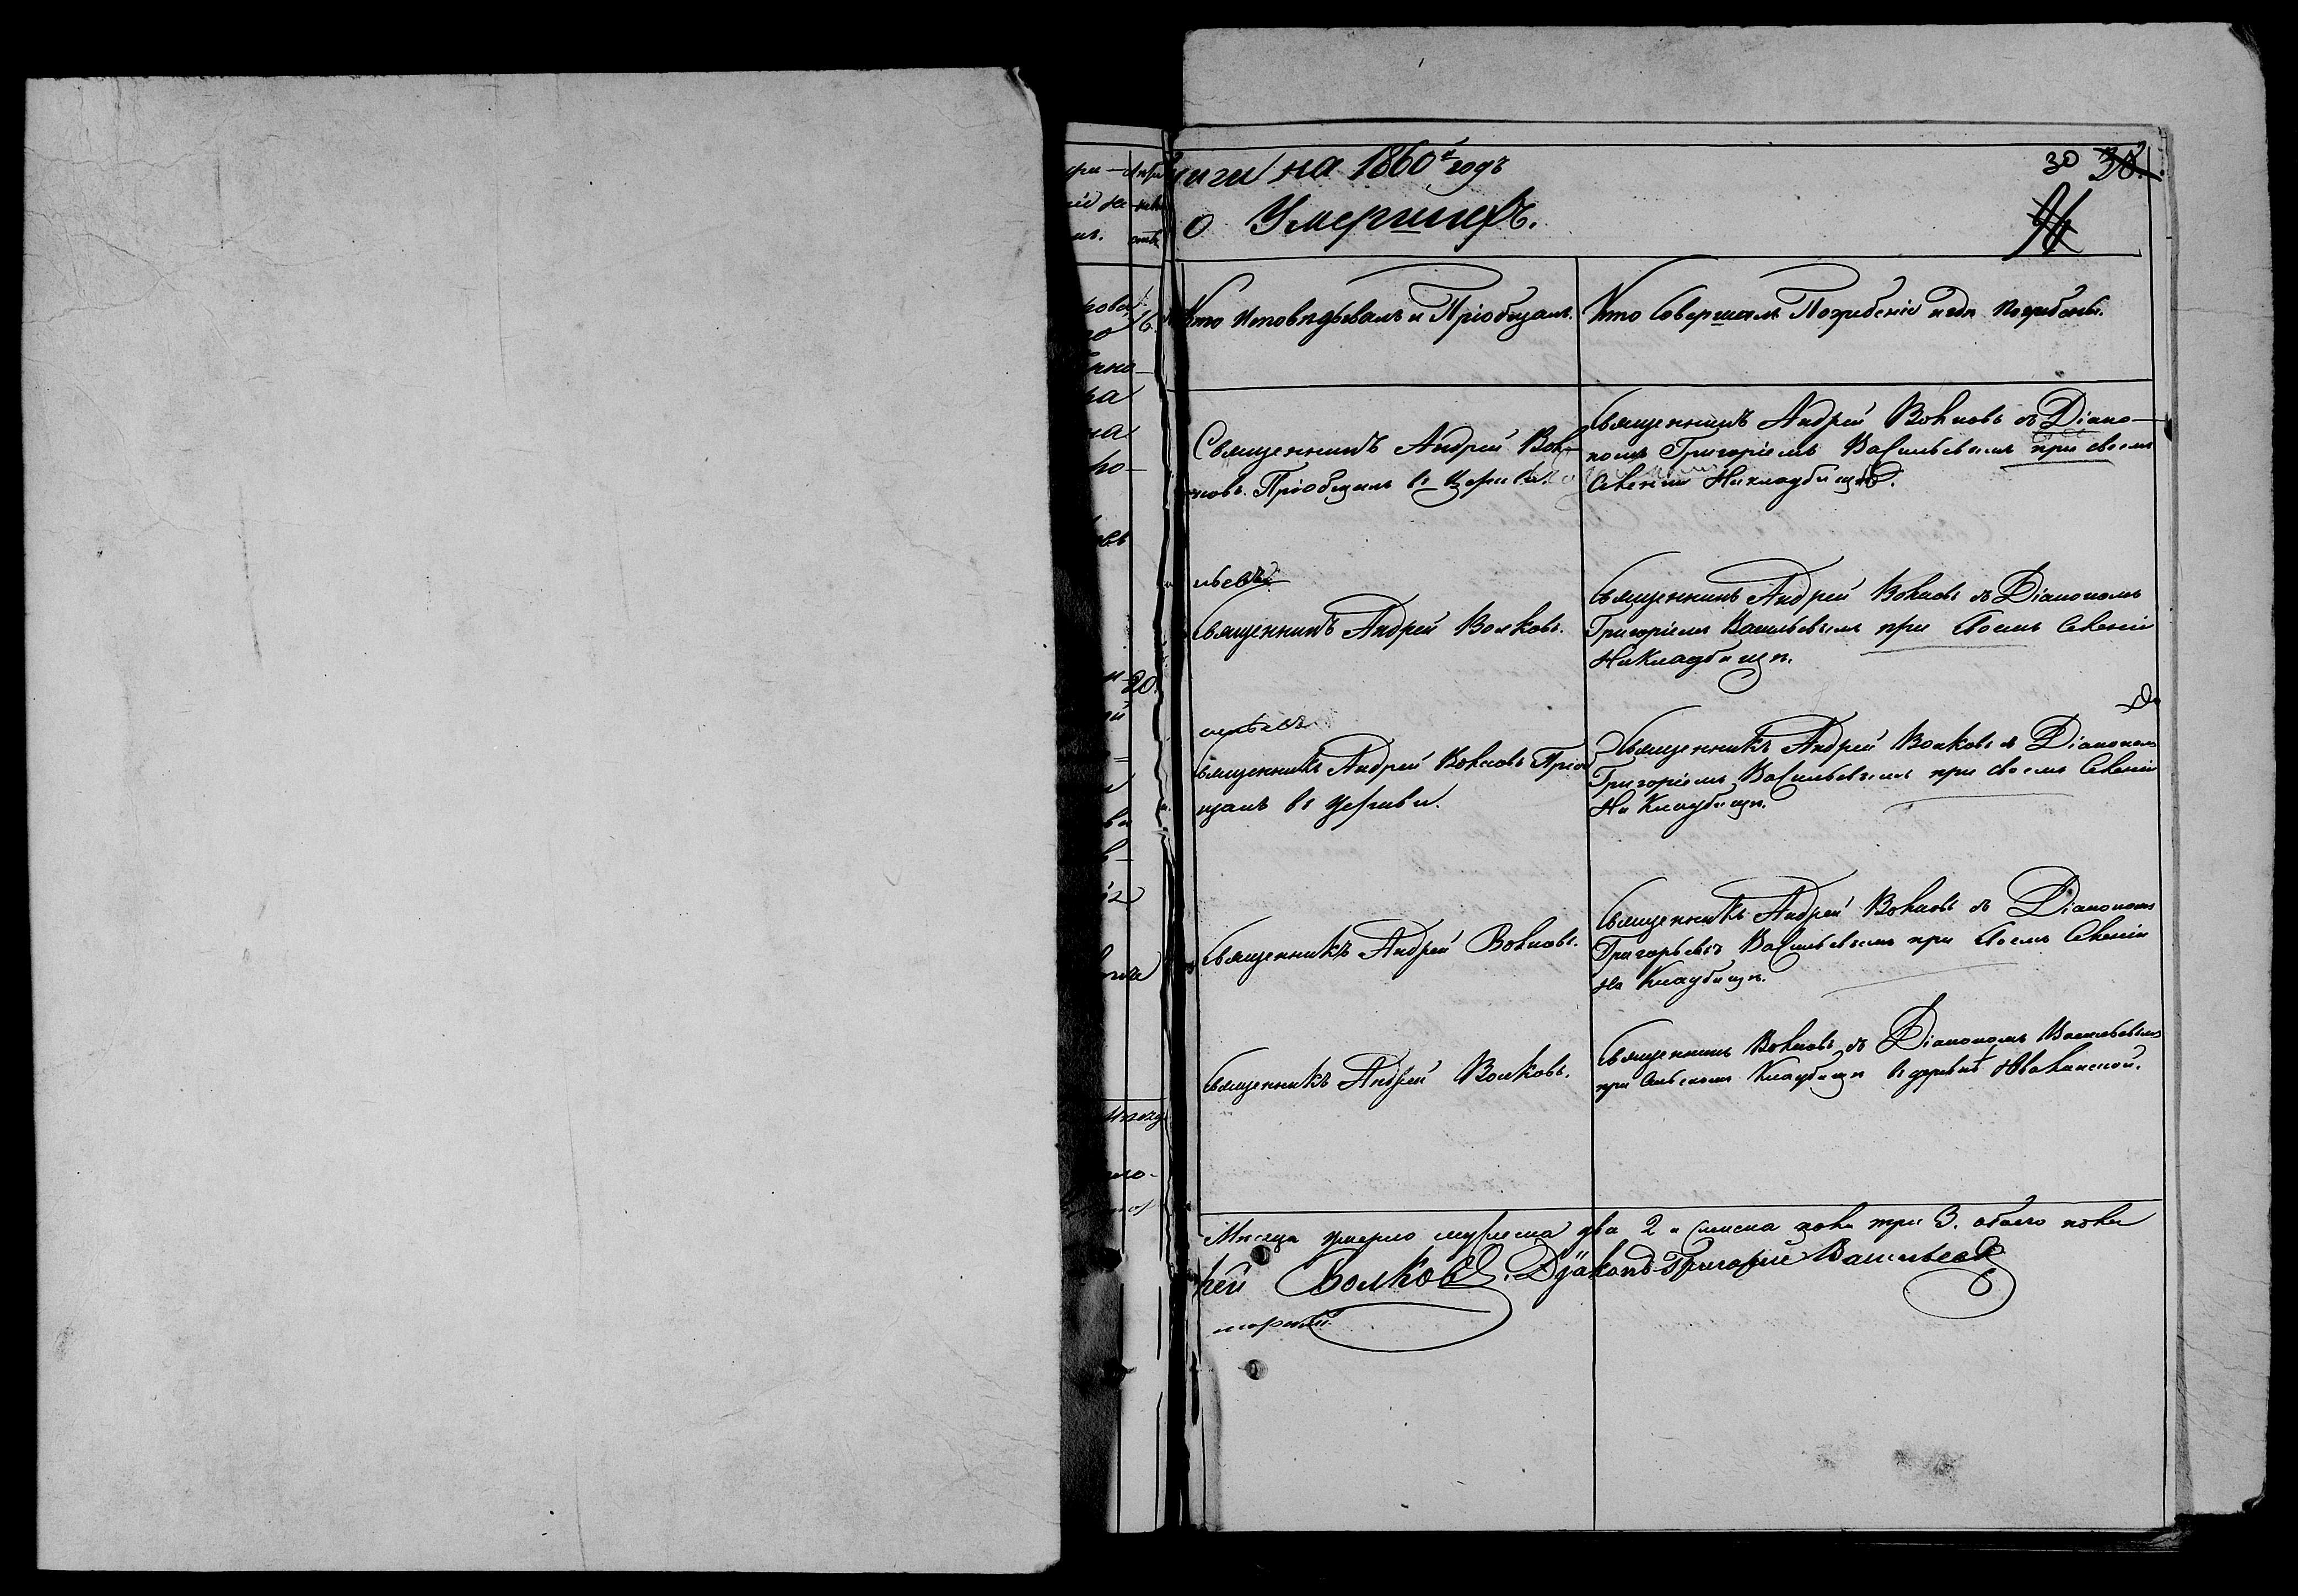 ниги на 1860й годъ
30 38.
о Умершихъ.
Кто исповѣдывалъ и Пріобщалъ.
Кто Совершалъ Погребеніе и гдѣ погребены.
Священникъ Андрей Вол-
ковъ. Пріобщалъ въ Церкви.
Священникъ Андрей Волковъ съ Діако-
номъ Григоріемъ Васильевымъ при своемъ
селеніи на кладбищѣ.
Священникъ Андрей Волковъ.
Священникъ Андрей Волковъ съ Діакономъ
Григоріемъ Васильевымъ при своемъ селеніи
на кладбищѣ.
Священникъ Андрей Волковъ Пріоб
щалъ въ церкви.
Священникъ Андрей Волковъ съ Діакономъ
Григоріемъ Васильевымъ при своемъ селеніи
на кладбищѣ.
Священникъ Андрей Волковъ.
Священникъ Андрей Волковъ съ Діакономъ
Григорьемъ Васильевымъ при своемъ селеніи
на кладбищѣ.
Священникъ Андрей Волковъ.
Священникъ Волковъ съ Діакономъ Васильевымъ
при сельскомъ кладбищѣ въ деревнѣ
Мѣсяца умерло мужеска два 2 и женска пола три 3. обоего пола
рей Волковъ. Діаконъ Григорій Васильевъ
16.
20.